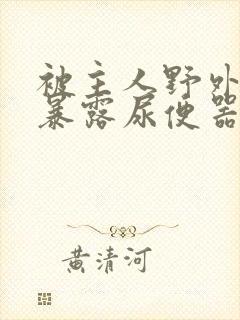 被主人野外
暴露尿便器
黄清河